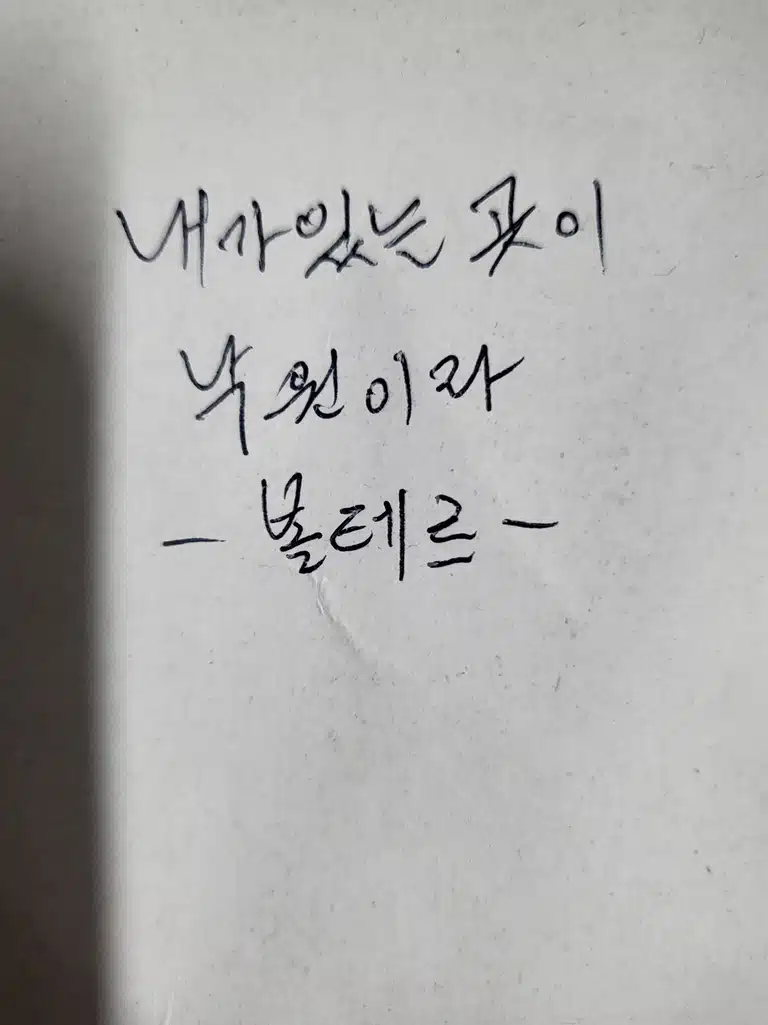 내가있는 곳이
낙원이라
- 볼테르 -